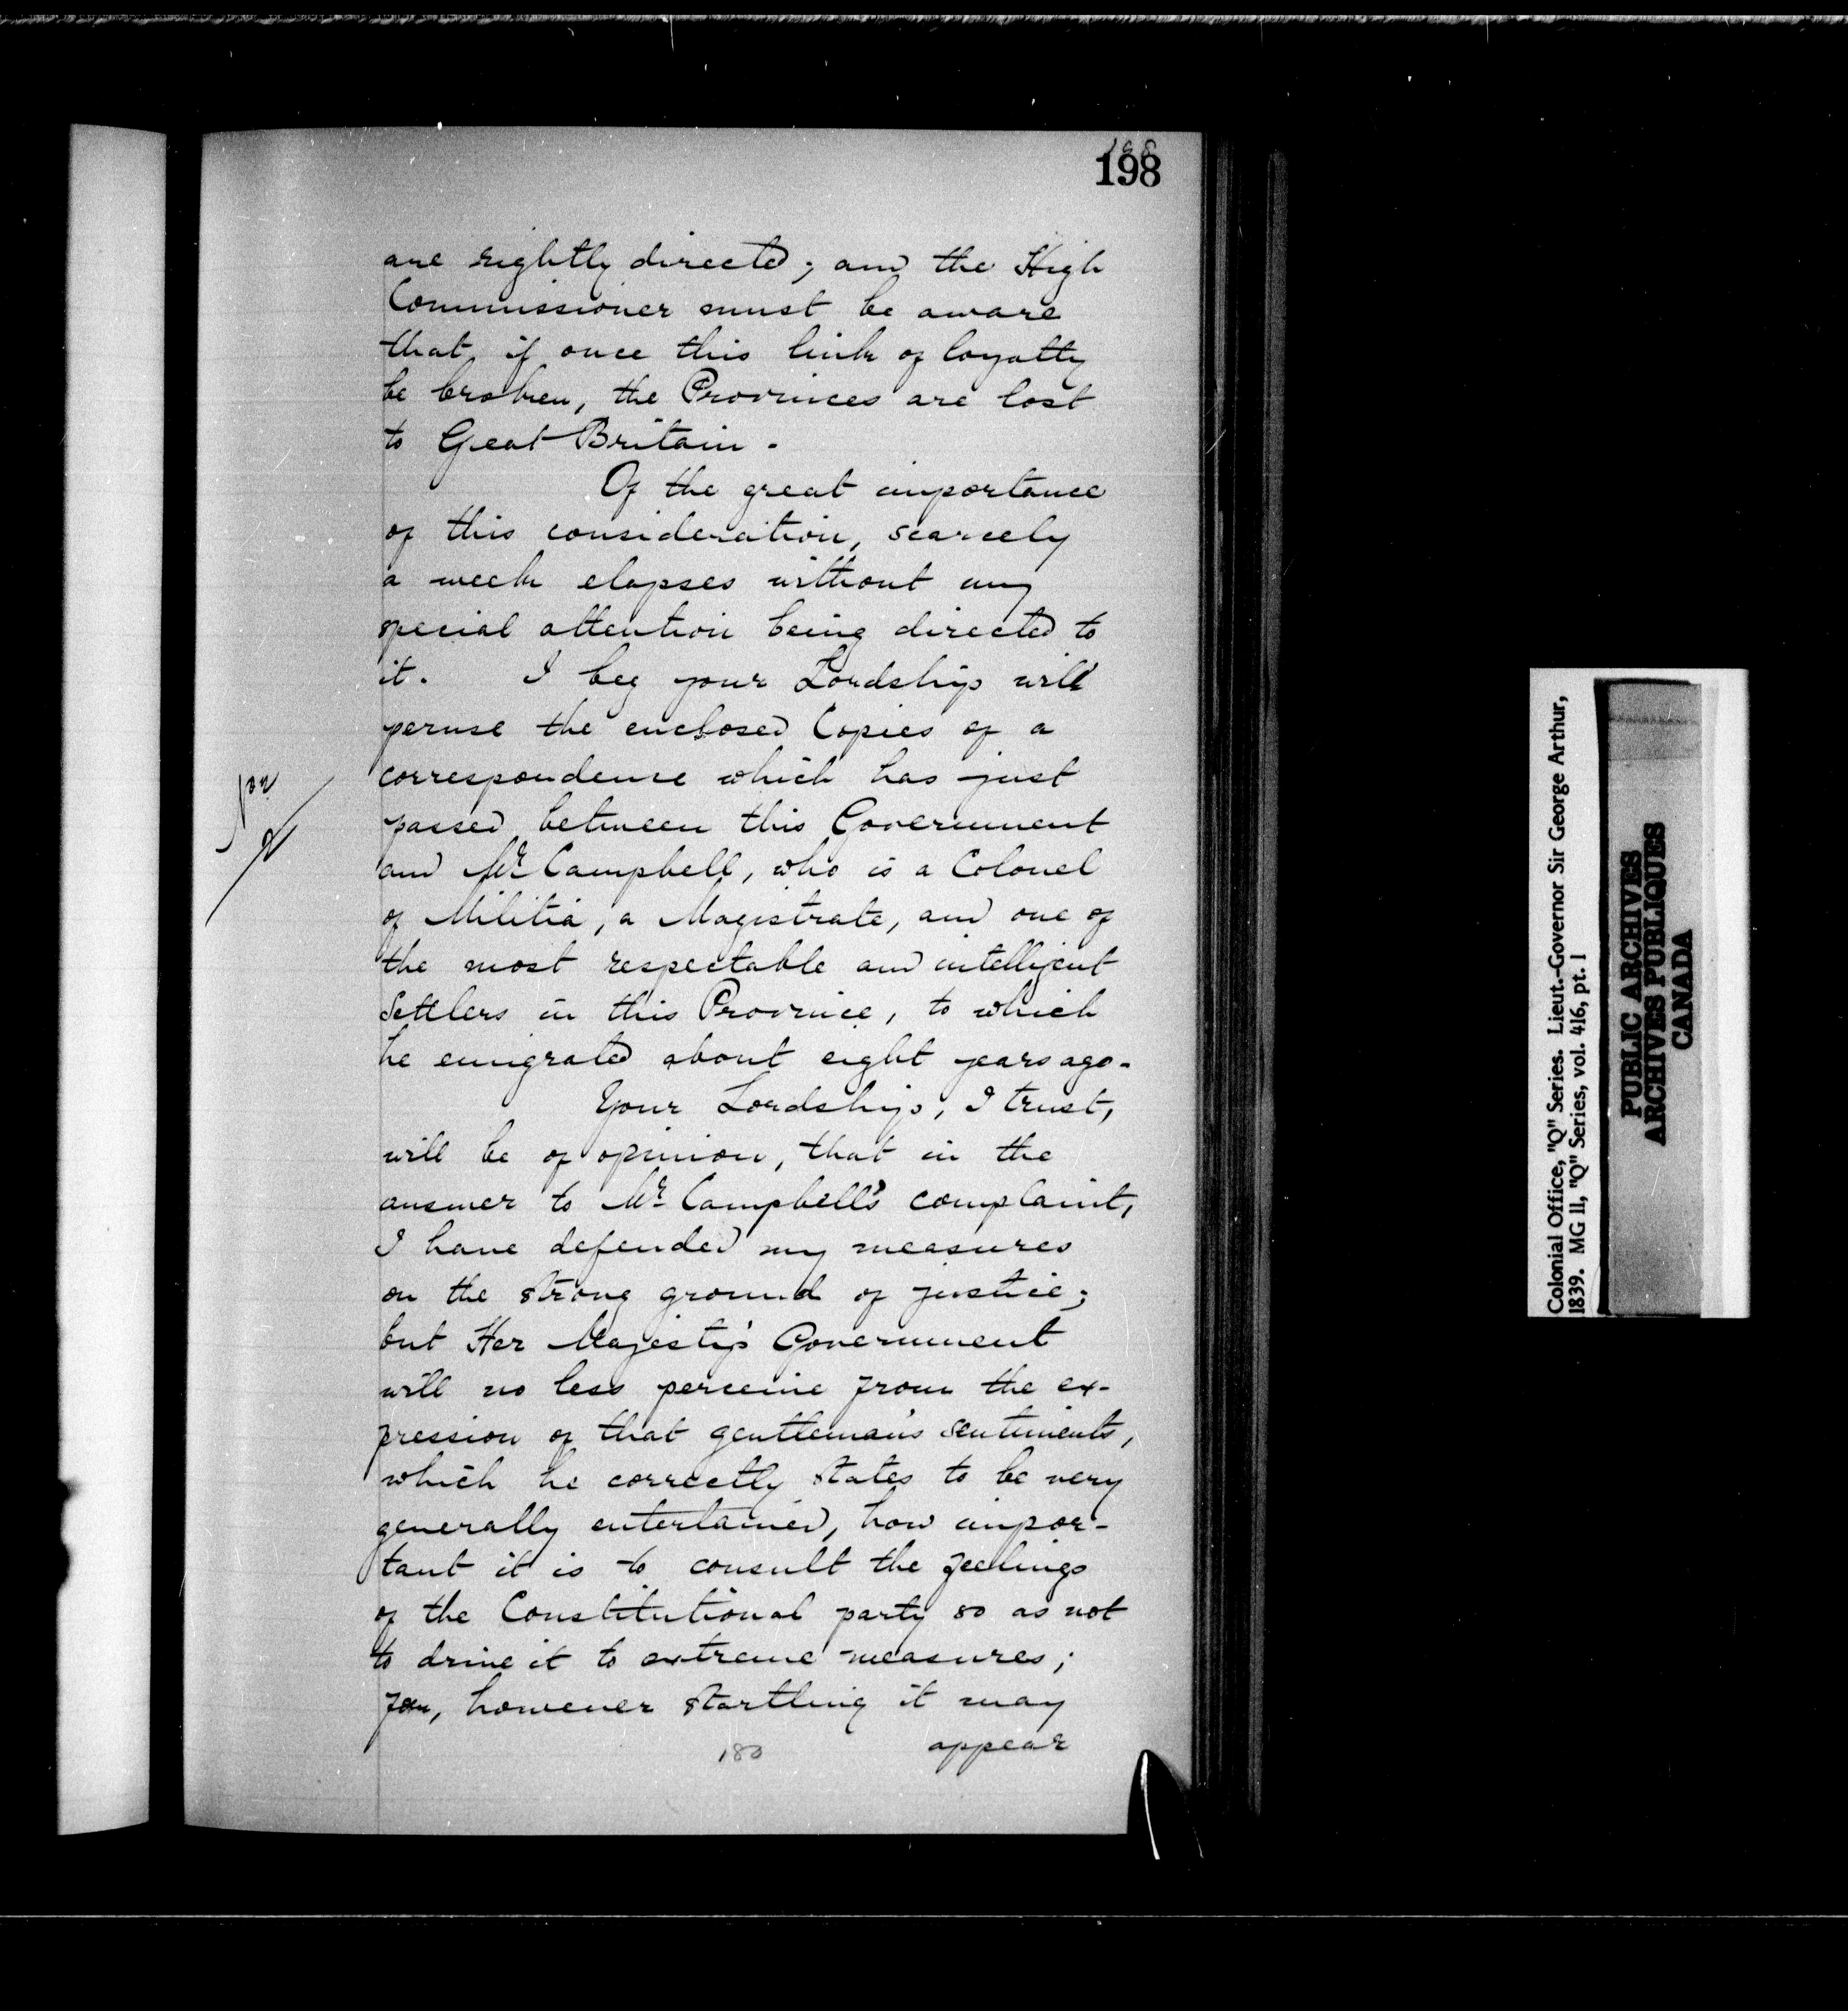 198
are rightly directed; and the High
Commissioner must be aware
that if once this link of loyalty
be broken, the Provinces are lost
to Geat Britain.
Of the great importance
of this consideration, scarcely
a week elapses without my
special attention being directed to
it. I beg your Lordship will
peruse the enclosed Copies of a
correspondence which has just
passed between this Government
and Mr Campbell, who is a Colonel
of Militia, a Magistrate, and one of
the most respectable and intelligent
Settlers in this Province, to which
he emigrated about eight years ago.
Your Lordship, I trust,
will be of opinion, that in the
answer to Mr Campbell's complaint,
I have defended my measures
on the strong ground of justice;
but Her Majesty's Government
will no less perceive from the ex-
pression of that gentleman's sentiments,
which he correctly states to be very
generally entertained, how impor-
tant it is to consult the feelings
of the Constitutional party so as not
to drive it to extreme measures;
for, however startling it may
appear
180
Colonial Office, "Q" Series. Lieut.-Governor Sir George Arthur,
1839. MG 11, "Q" Series, vol. 416, pt. 1
PUBLIC ARCHIVES
ARCHIVES PUBLIQUES
CANADA